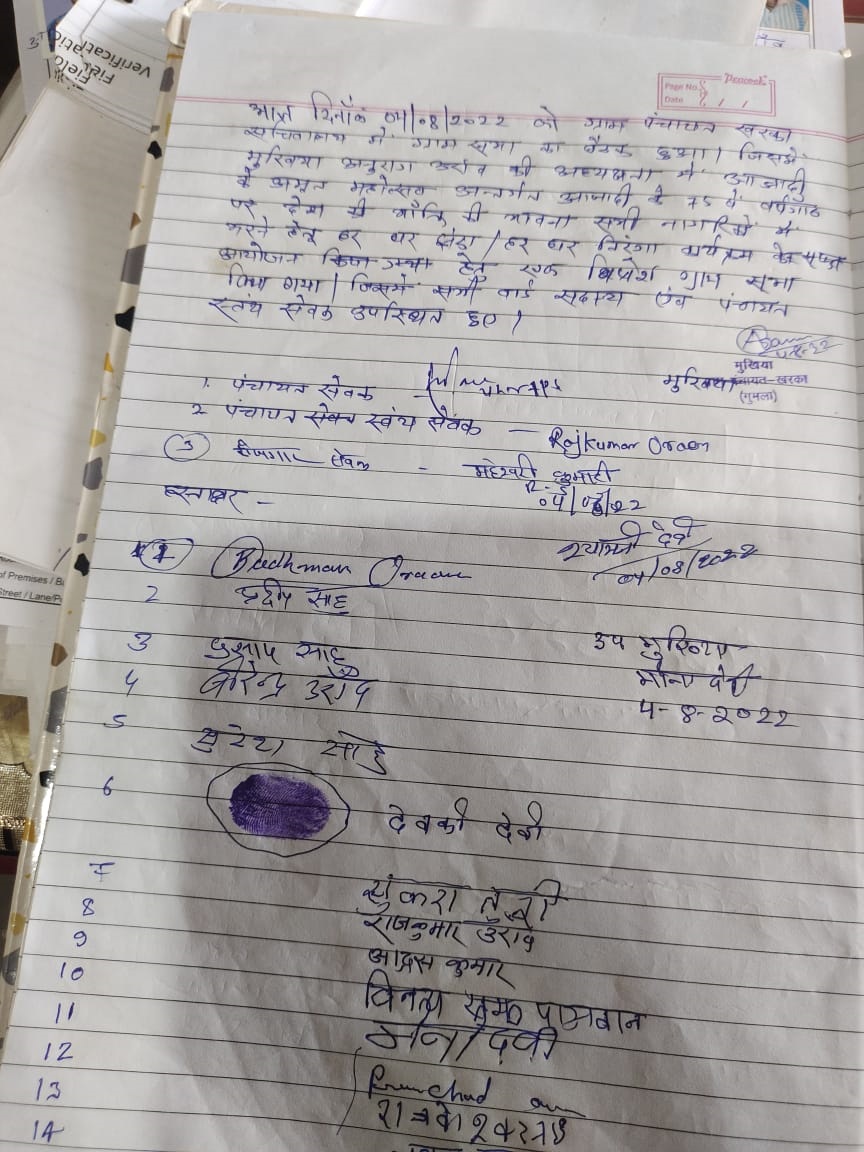 Field
Verification
Peacock
Page No.
Date
आज दिनाँक 04/08/2022 को ग्राम पंचायत खरका
सचिवालय में ग्राम सभा का बैठक हुआ। जिसमें
मुखिया अनुराग उराँव की अध्यक्षता में आजादी
के अमृत महोत्सव अन्तर्गत आजादी के 75 वें वर्षगाठ
पर देश में भक्ति की भावना सभी नागरिकों में
करने हेतू हर घर झंडा / हर घर तिरंगा कार्यक्रम के
आयोजन हेतु एक विशेष ग्राम सभा
किया गया। जिसमें सभी वार्ड सदस्य एंव पंचायत
स्वंय सेवक उपस्थित हुए।
मुखिया
पंचायत-खरका
(गुमला)
मुखिया
1. पंचायत सेवक
2. पंचायत सेवक स्वंय सेवक — Rajkumar Oraon
3 रोजगार सेवक - महेश्वरी कुमारी
04/08/22
हस्ताक्षर -
देवी
04/08/2022
1 Budhman Oraon
2 प्रदीप साहु
3 साहु
उप मुखिया
4 बीरेन्द्र उराँव
देवी
4-8-2022
5 सुरेश साहु
6 देवकी देवी
7
8 राजकुमार उराँव
9 कुमार
10 पासवान
11 देवी
12
13
14
of Premises / B
Street / Lane/P